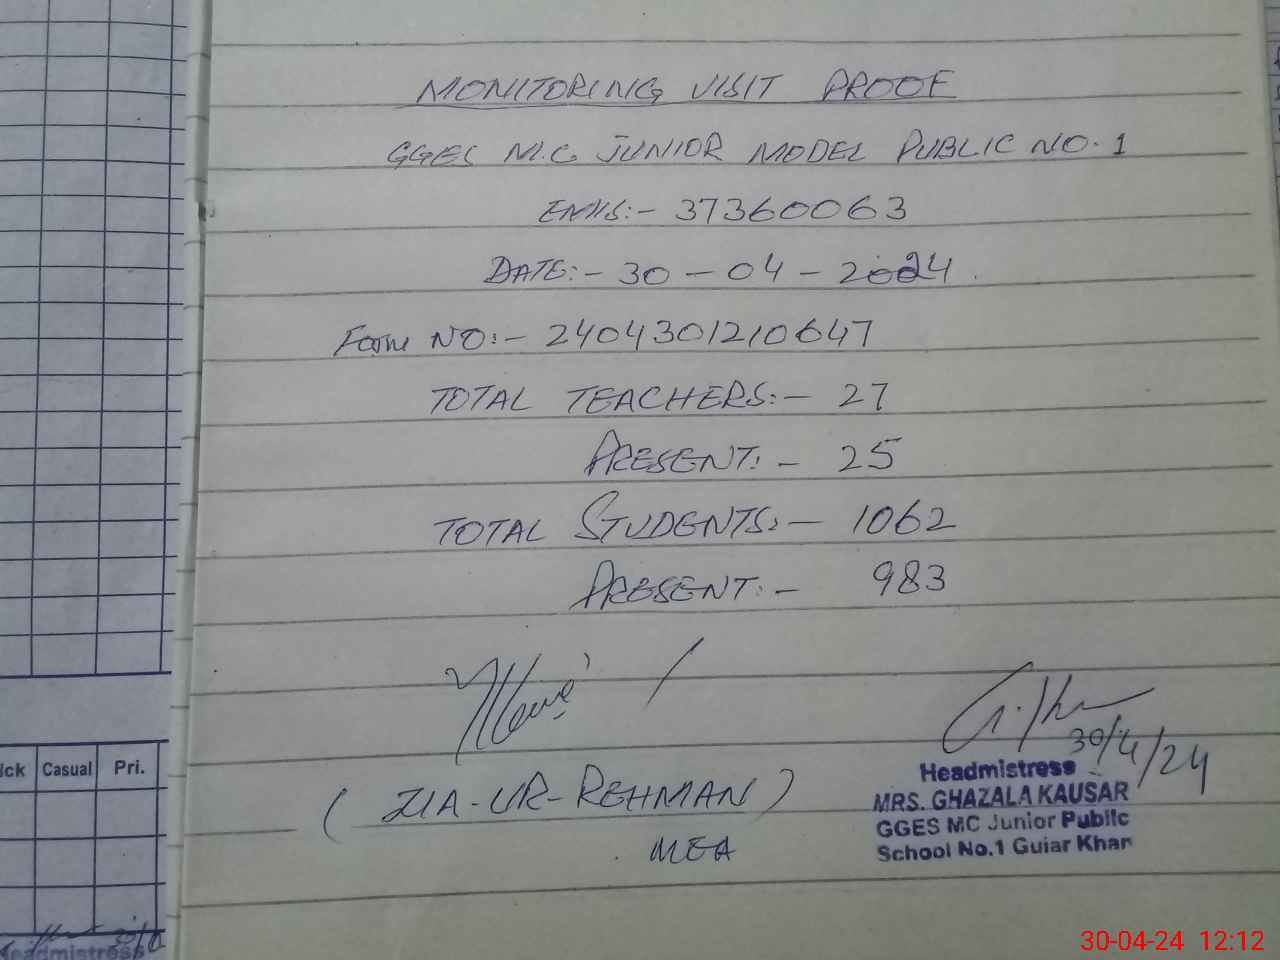 MONITORING VISIT PROOF
GGES M.C JUNIOR MODEL PUBLIC NO. 1
EMIS:- 37360063
DATE:- 30 - 04 - 2024
Form NO:- 2404301210647
TOTAL TEACHERS:- 27
PRESENT:- 25
TOTAL STUDENTS:- 1062
PRESENT:- 983
30/4/24
(ZIA-UR-REHMAN)
MEA
Headmistress
MRS. GHAZALA KAUSAR
GGES MC Junior Public
School No.1 Gujar Khan
ick Casual Pri.
Headmistress
30-04-24 12:12